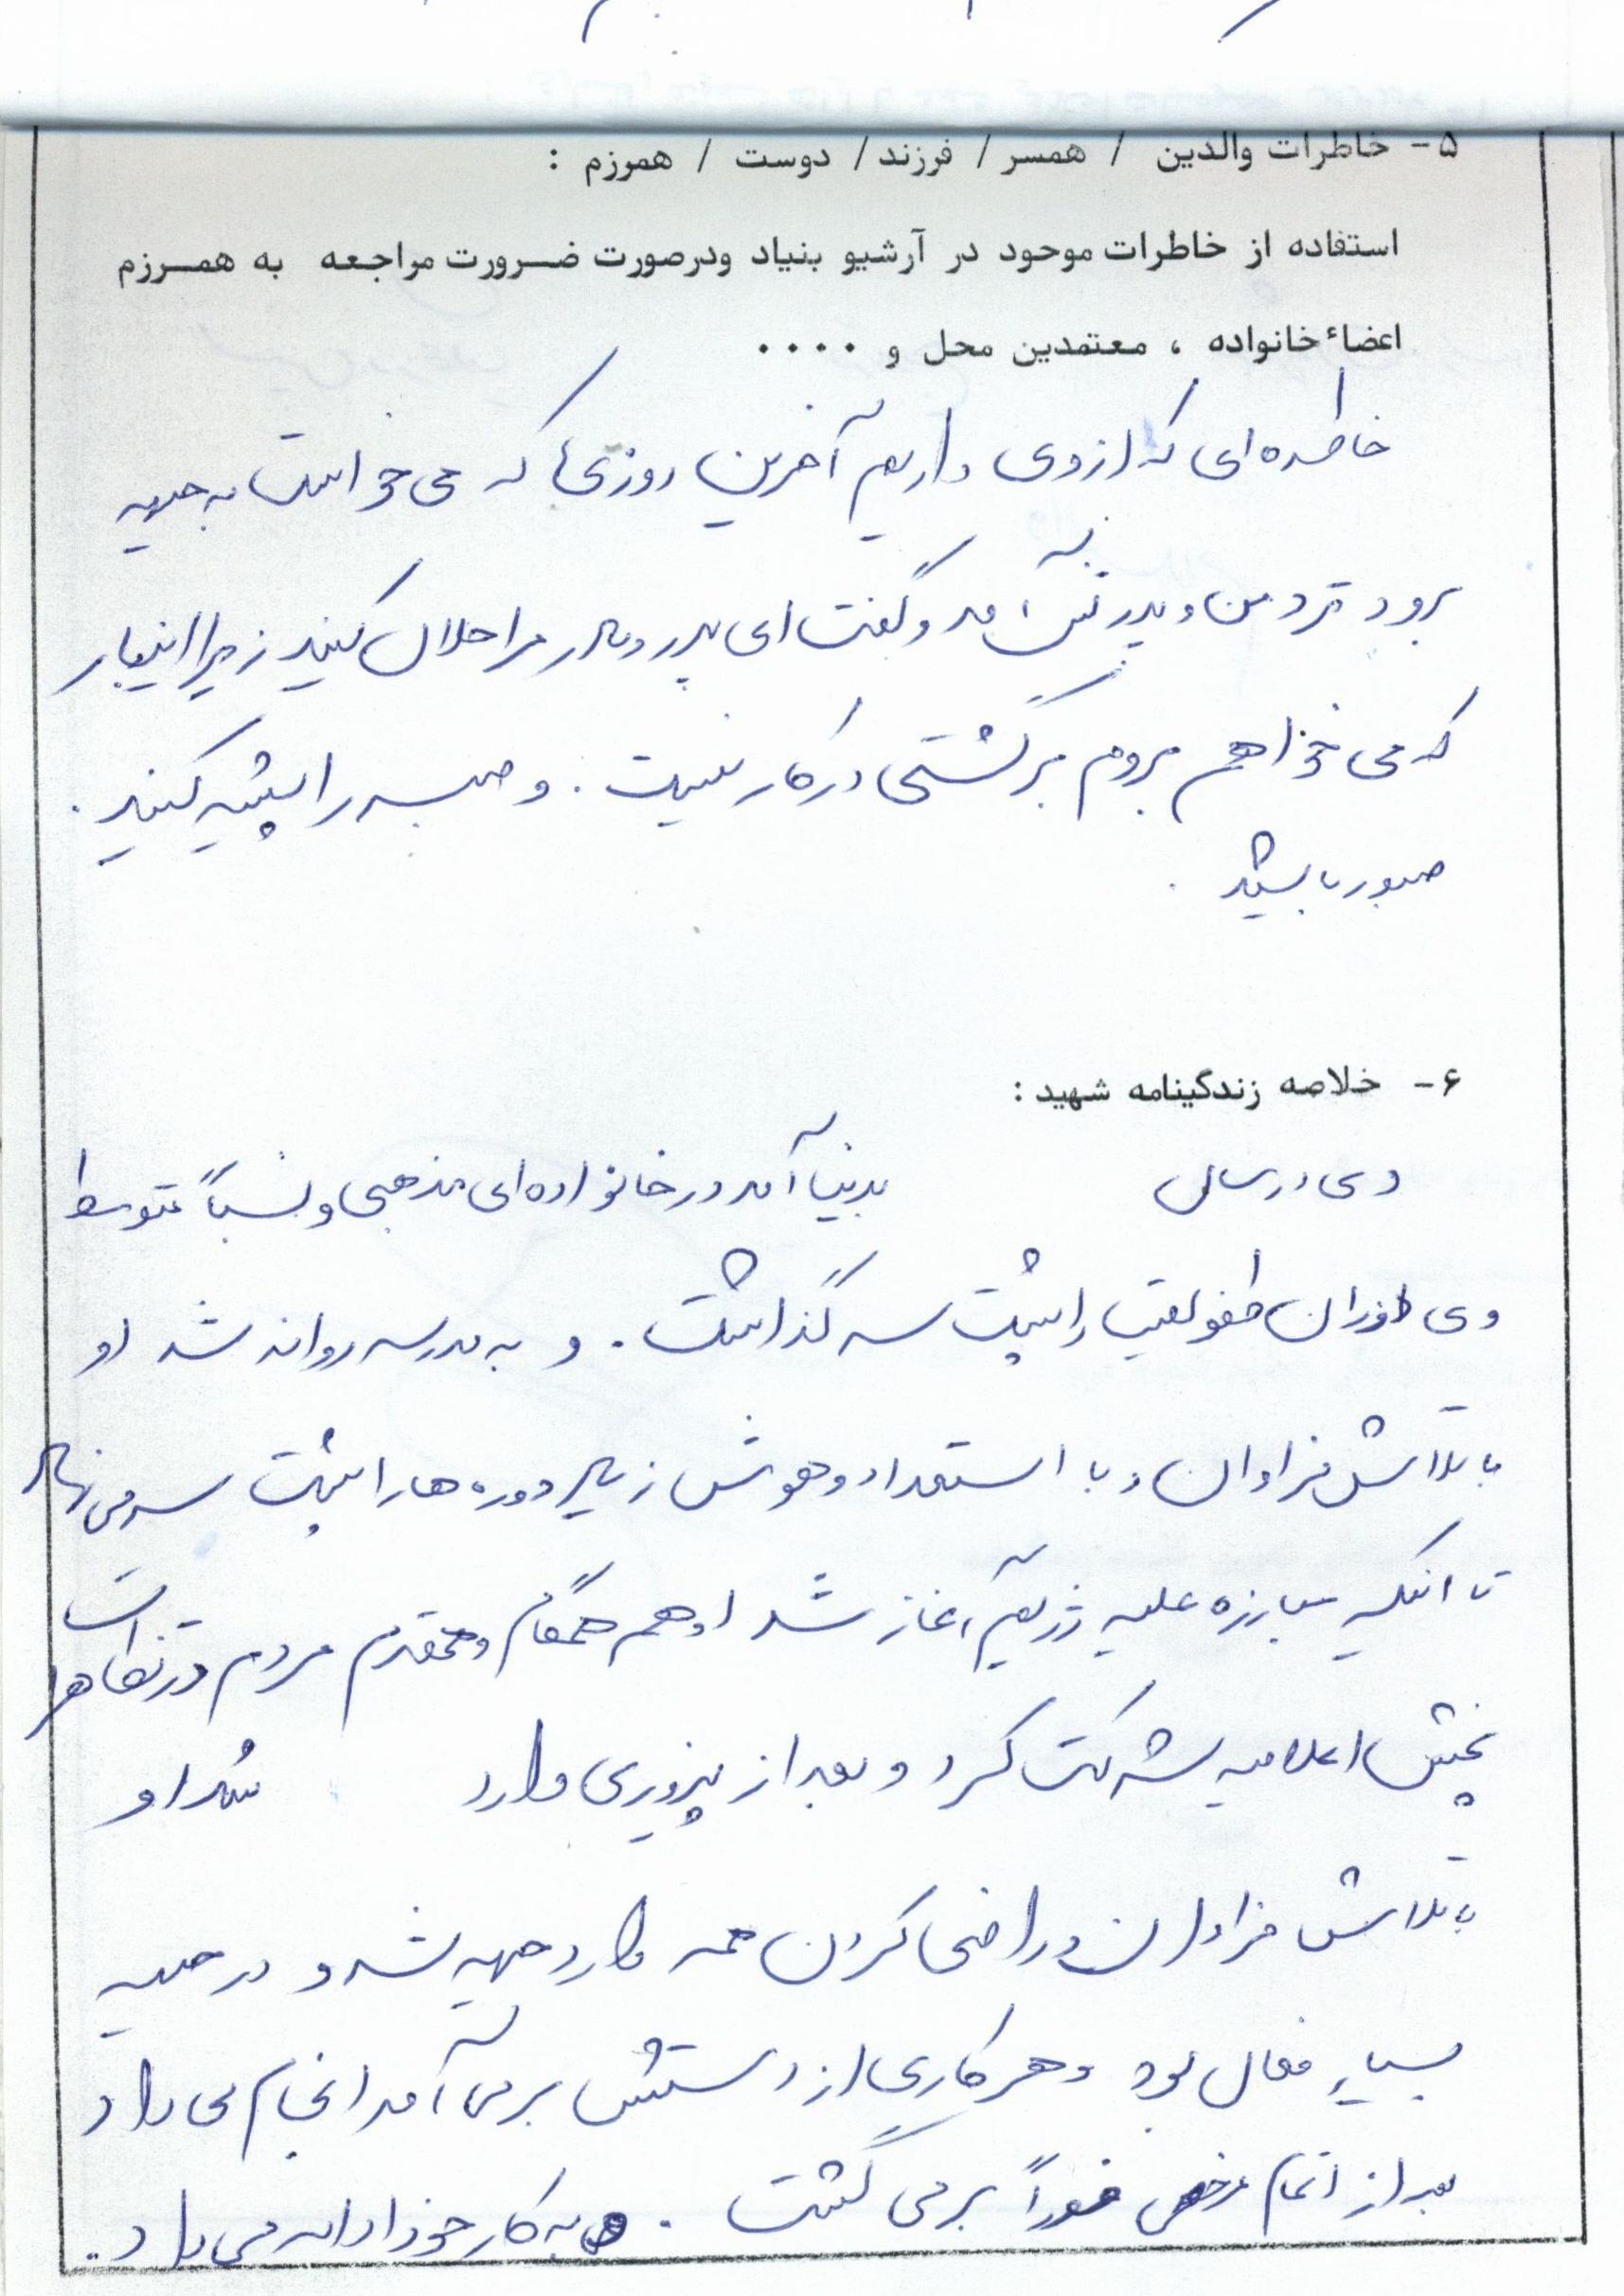 ۵- خاطرات والدین / همسر / فرزند / دوست / همرزم :
استفاده از خاطرات موجود در آرشیو بنیاد ودرصورت ضرورت مراجعه به همرزم
اعضاء خانواده ، معتمدین محل و ....
خاطره‌ای که از وی داریم آخرین روزی که می خواست به جبهه
برود نزد من و پدرش آمد و گفت ای پدر و مادر مرا حلال کنید زیرا اینبار
که می خواهم بروم برگشتی در کار نیست . و صبر را پیشه کنید .
صبور باشید .
۶- خلاصه زندگینامه شهید :
وی در سال بدنیا آمد در خانواده‌ای مذهبی و نسبتاً متوسط
وی دوران طفولیت را پشت سر گذاشت . و به مدرسه روانه شد او
با تلاش فراوان و با استعداد و هوش زیاد دوره ها را پشت سر می نهاد
تا اینکه مبارزه علیه رژیم آغاز شد او هم همگام و همقدم مردم در تظاهرات
پخش اعلامیه شرکت کرد و بعد از پیروزی وارد شد او
با تلاش فراوان و راضی کردن همه وارد جبهه شد و در جبهه
بسیار فعال بود و هر کاری از دستش بر می آمد انجام می داد
بعد از اتمام مرخصی فوراً بر می گشت . و به کار خود ادامه می داد .